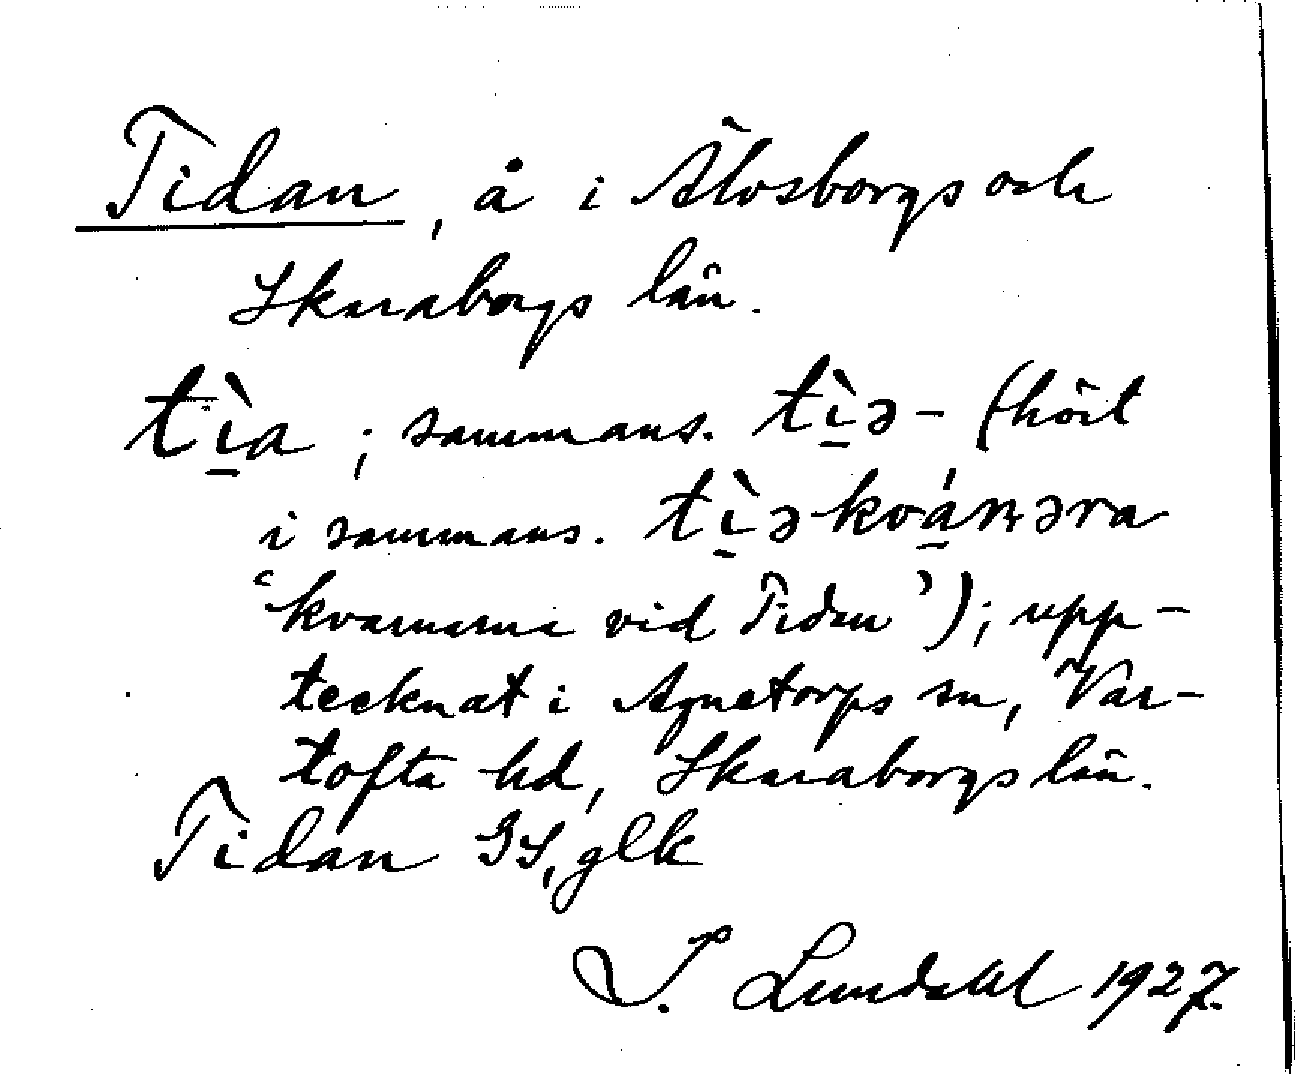 Tidan, å i Älvsborgs och
Skaraborgs län.
tı̱̀a; sammans. tı̱̀ə- (hört
i sammans. tı̱̀əkvá̱ɳəra
‘kvarnarna vid Tidan’); upp-
tecknat i Agnetorps sn, Var-
tofta hd, Skaraborgs län.
Tidan GS, glk
I. Lundahl 1927.